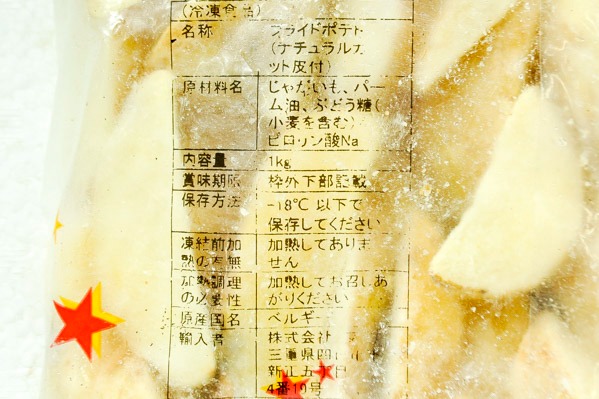 (冷凍食品)
名称
フライドポテト
(ナチュラルカ
ット皮付)
原材料名
じゃがいも、パー
ム油、ぶどう糖(
小麦を含む)・
ピロリン酸Na
内容量
1kg
賞味期限
枠外下部記載
保存方法
-18℃以下で
保存してください
凍結前加
熱の有無
加熱してありま
せん
加熱調理
の必要性
加熱してお召しあ
がりください
原産国名
ベルギー
輸入者
株式会社
三重県四日市
新正五丁目
4番10号